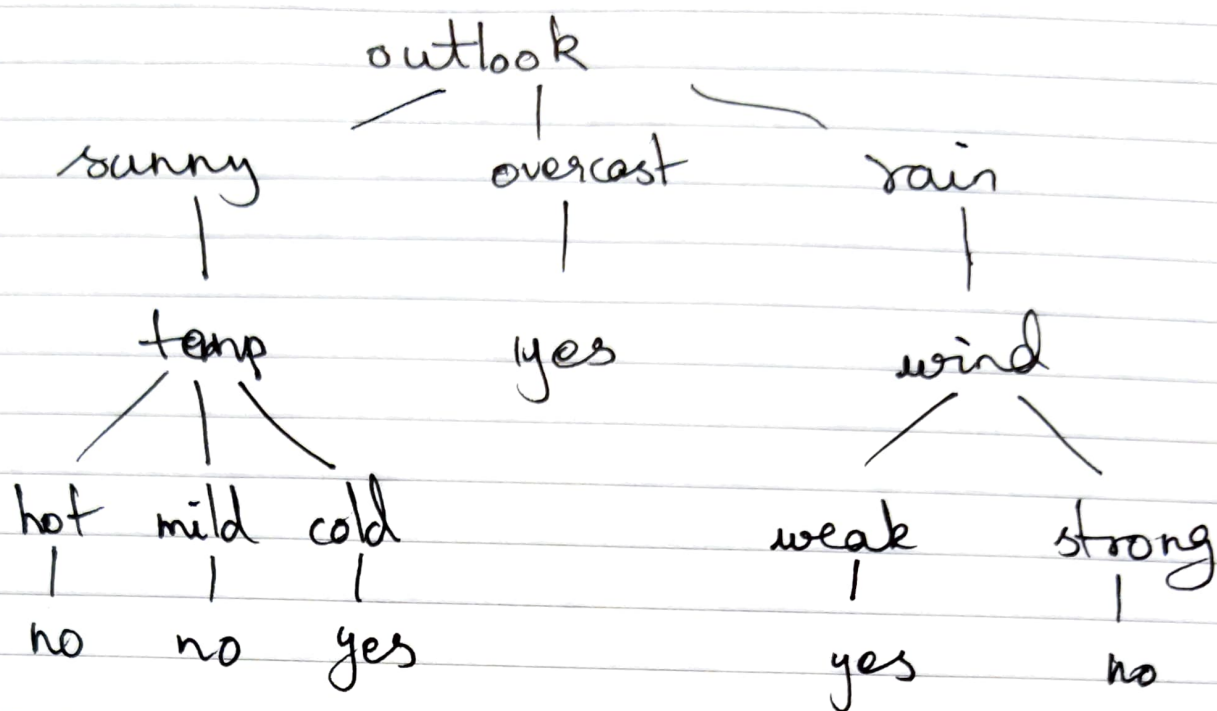 outlook
sunny overcast rain
temp yes wind
hot mild cold weak strong
no no yes yes no